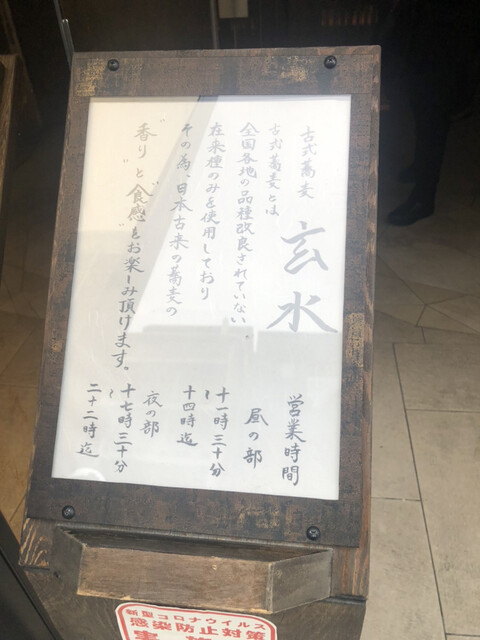 古式蕎麦
玄水
古式蕎麦とは
全国各地の品種改良されていない
在来種のみを使用しており
その為、日本古来の蕎麦の
"香り"と"食感"をお楽しみ頂けます。
営業時間
昼の部
十一時三十分
~
十四時迄
夜の部
十七時三十分
~
二十二時迄
新型コロナウイルス
感染防止対策